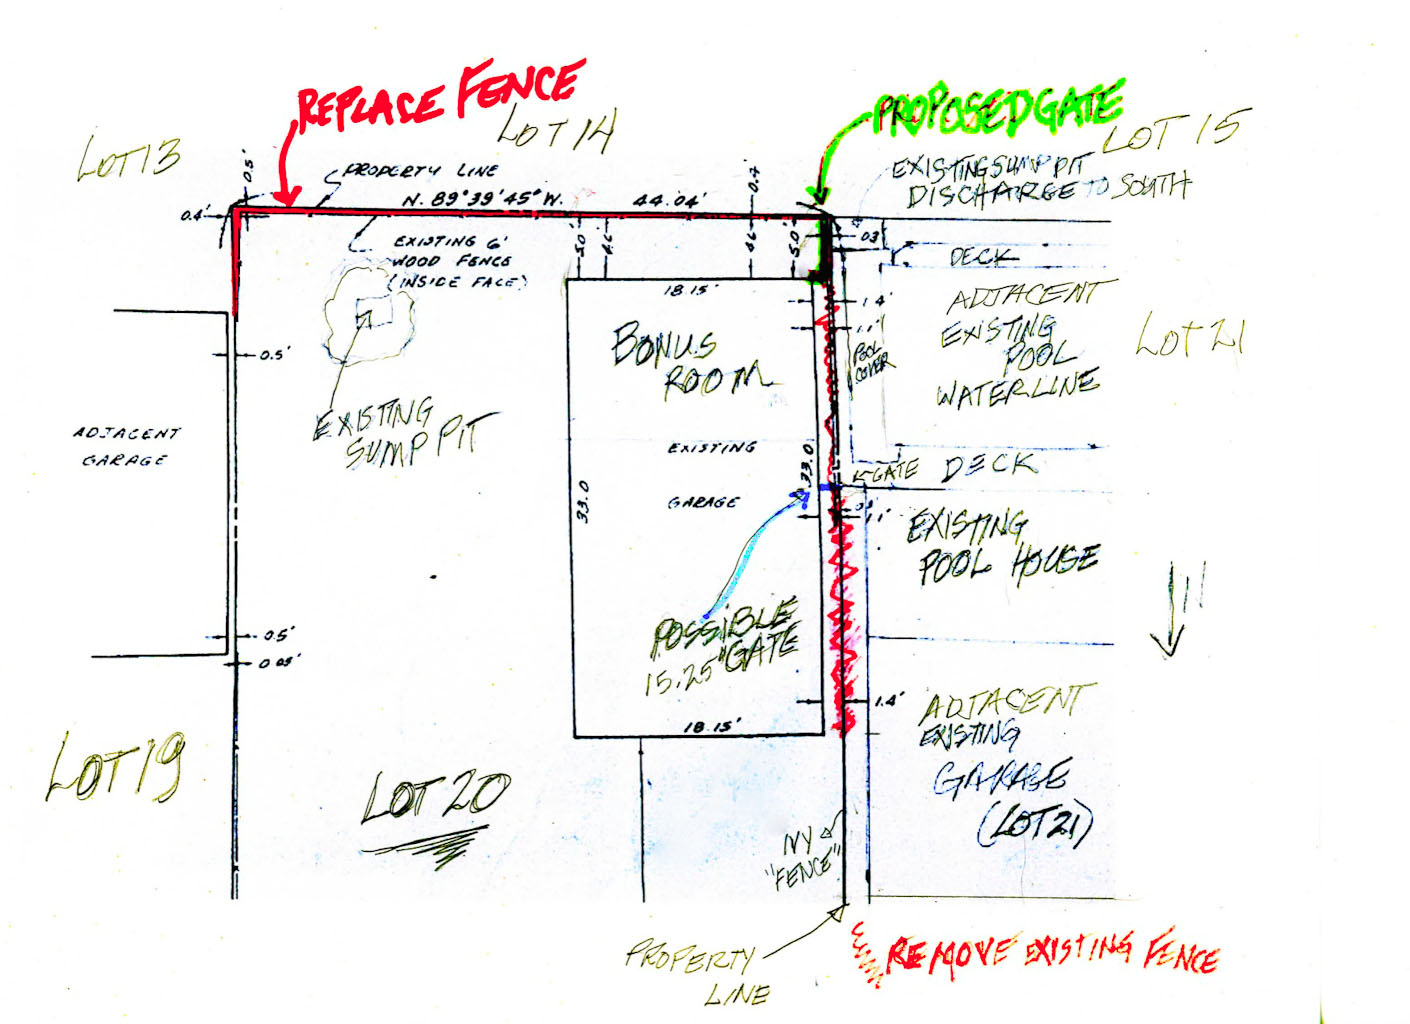 REPLACE FENCE
PROPOSED GATE
LOT 13
LOT 14
LOT 15
0.5'
PROPERTY LINE
0.4'
EXISTING SUMP PIT
DISCHARGE TO SOUTH
0.4'
N. 89°39'45" W.
44.04'
EXISTING 6'
WOOD FENCE
(INSIDE FACE)
5.0'
4.6
4.6
5.0'
03
DECK
18.15'
1.4'
ADJACENT
EXISTING
POOL
WATERLINE
LOT 21
BONUS
ROOM
1.1'
POOL
COVER
0.5'
EXISTING
SUMP PIT
ADJACENT
GARAGE
EXISTING
GARAGE
33.0
33.0
GATE
DECK
1.1'
EXISTING
POOL HOUSE
POSSIBLE
15.25" GATE
0.5'
0.05'
18.15'
1.4'
ADJACENT
EXISTING
GARAGE
(LOT 21)
LOT 19
LOT 20
IVY
"FENCE"
PROPERTY
LINE
REMOVE EXISTING FENCE